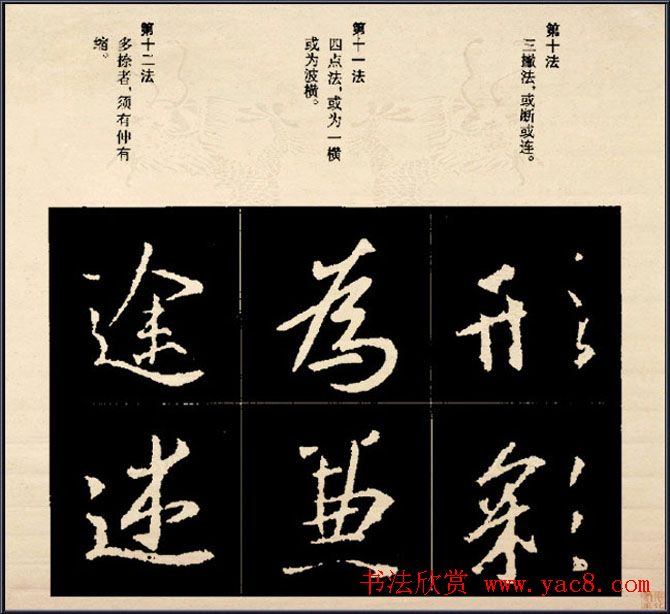 第十法
三撇法，或断或连。
第十一法
四点法，或为一横
或为波横。
第十二法
多捺者，须有伸有
缩。
形
彩
為
途
书法欣赏 www.yac8.com